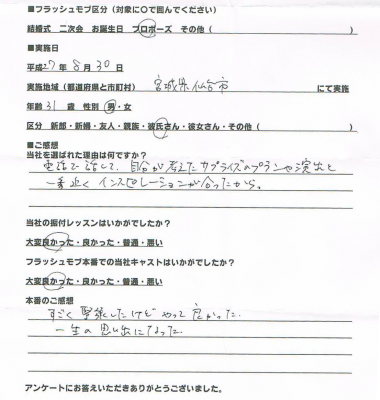 ■フラッシュモブ区分（対象に○で囲んでください）
結婚式 二次会 お誕生日 プロポーズ その他（ ）
■実施日
平成27年8月30日
実施地域（都道府県と市町村） 宮城県仙台市 にて実施
年齢 31 歳 性別 男・女
区分 新郎・新婦・友人・親族・彼氏さん・彼女さん・その他（ ）
■ご感想
当社を選ばれた理由は何ですか？
電話で話して、自分が考えたサプライズのプランや演出と
一番近くインスピレーションが合ったから。
当社の振付レッスンはいかがでしたか？
大変良かった・良かった・普通・悪い
フラッシュモブ本番での当社キャストはいかがでしたか？
大変良かった・良かった・普通・悪い
本番のご感想
すごく緊張したけどやって良かった。
一生の思い出になった。
アンケートにお答えいただきありがとうございました。